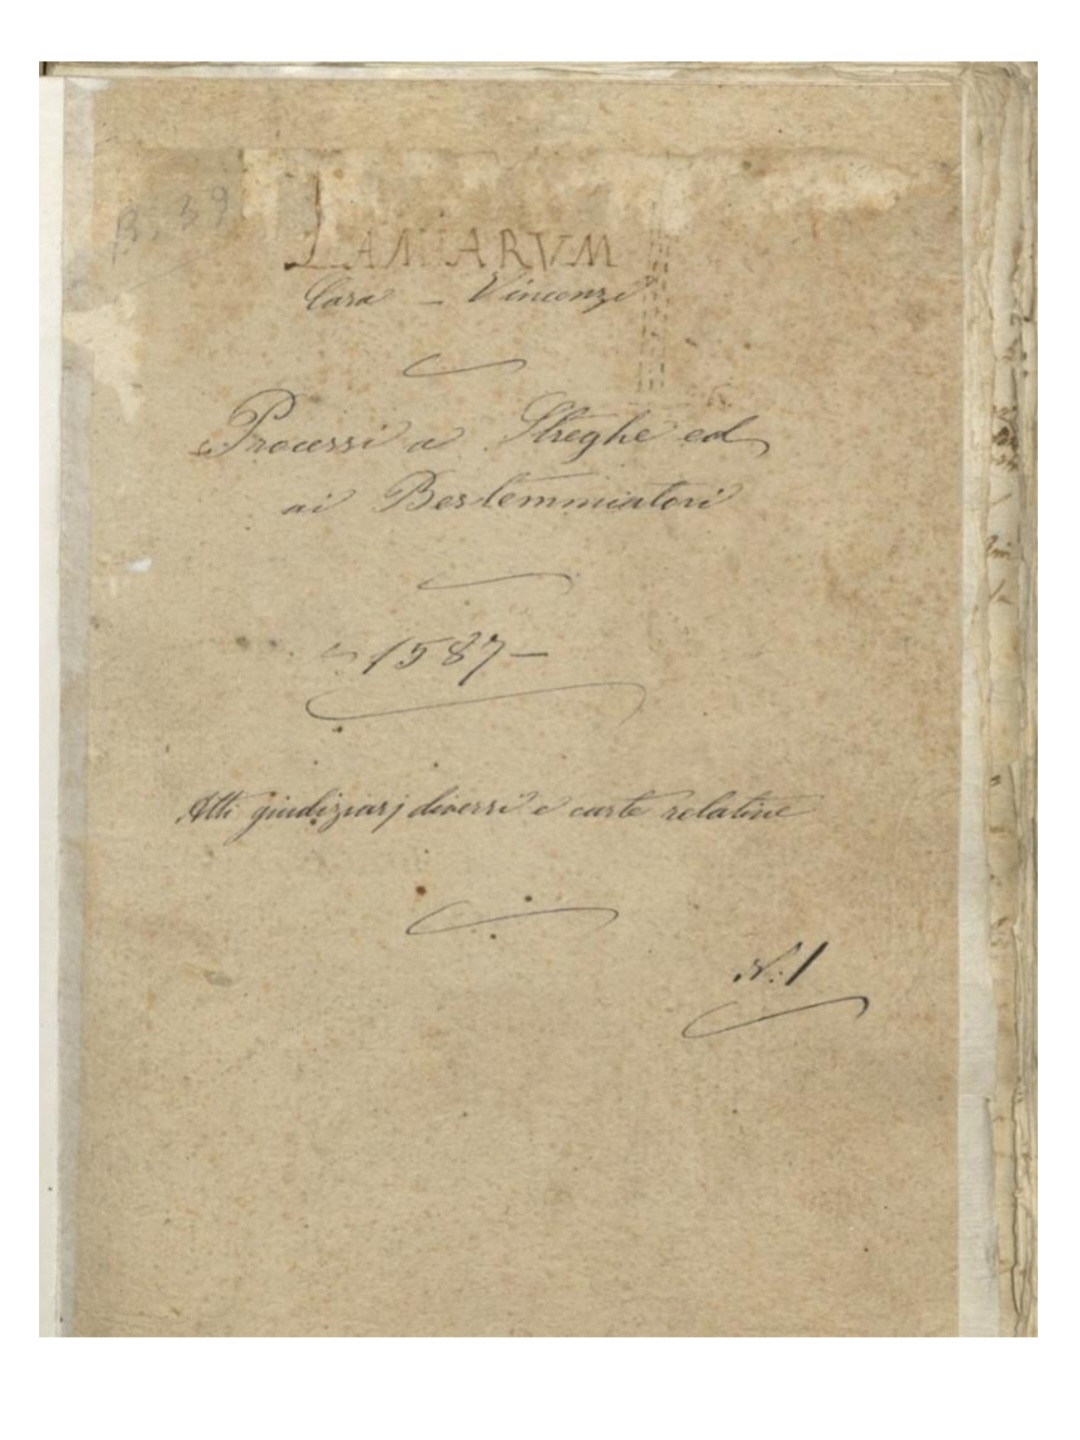 B. 39
LAMIARVM
Casa – Vincenzi
Processi a Streghe ed
ai Bestemmiatori
1587 –
Atti giudiziarj diversi e carte relative
N: 1